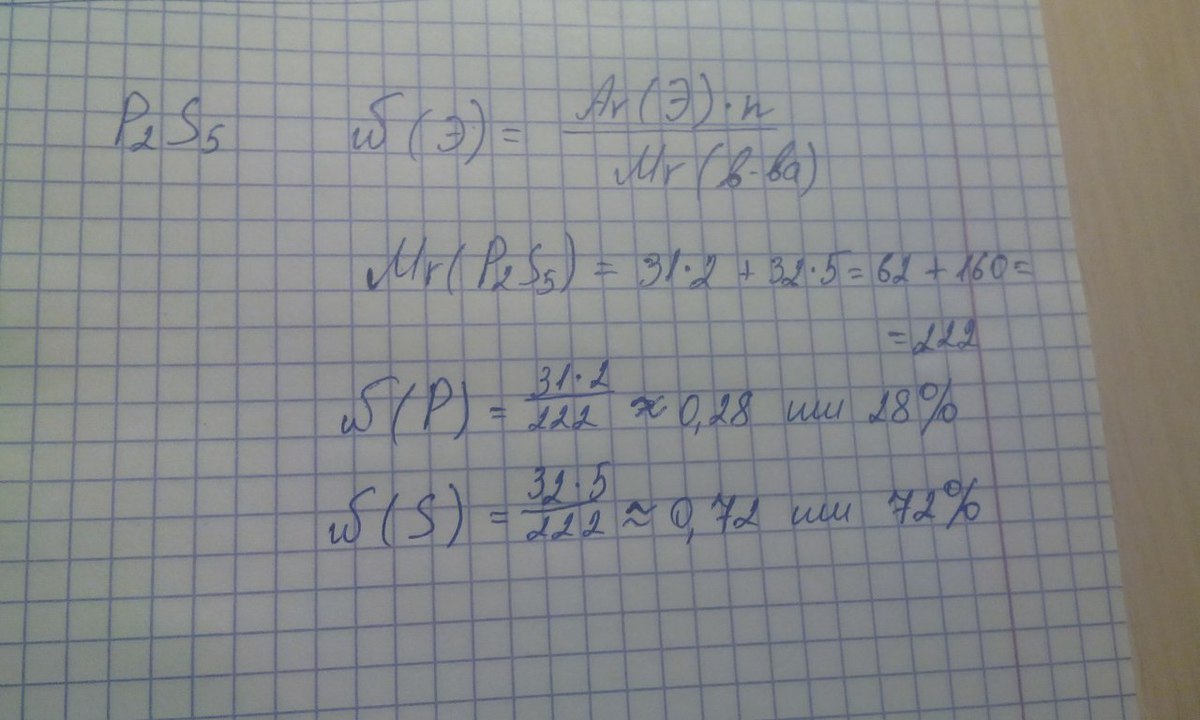 P₂S₅ W(Э) = Ar(Э)·n / Mr(в-ва)
Mr(P₂S₅) = 31·2 + 32·5 = 62 + 160 =
= 222
W(P) = 31·2 / 222 ≈ 0,28 или 28%
W(S) = 32·5 / 222 ≈ 0,72 или 72%